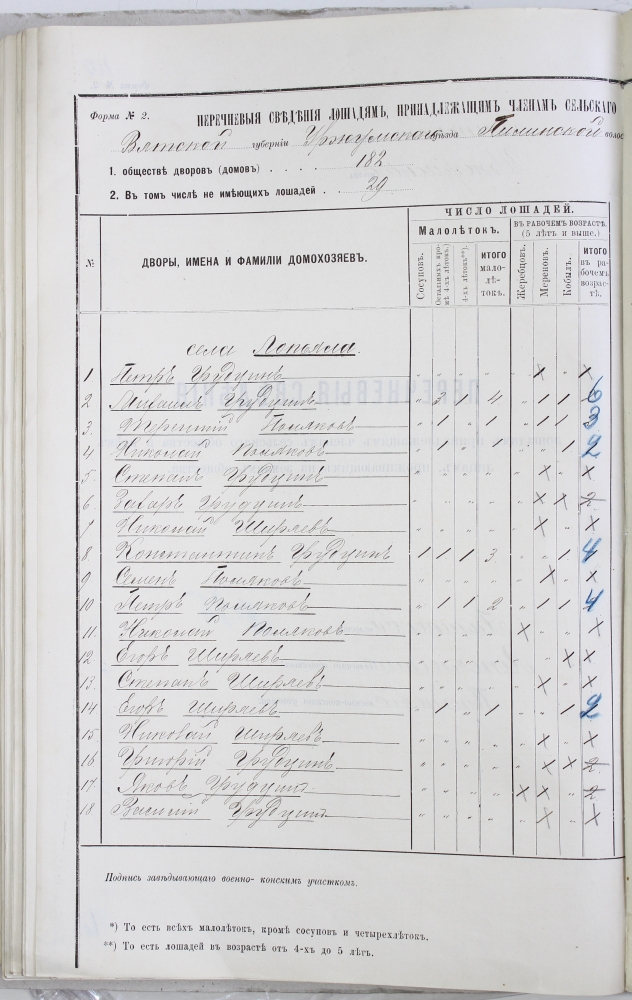 Форма № 2.
ПЕРЕЧНЕВЫЯ СВѢДѢНІЯ ЛОШАДЯМЪ, ПРИНАДЛЕЖАЩИМЪ ЧЛЕНАМЪ СЕЛЬСКАГО
Вятской губерніи Уржумскаго уѣзда Пилинской волос
1. обществѣ дворовъ (домовъ) . . . . 182
2. Въ томъ числѣ не имѣющихъ лошадей . . 29
№
ДВОРЫ, ИМЕНА И ФАМИЛІИ ДОМОХОЗЯЕВЪ.
ЧИСЛО ЛОШАДЕЙ.
Малолѣтокъ.
ВЪ РАБОЧЕМЪ ВОЗРАСТѢ. (5 ЛѢТЪ И ВЫШЕ.)
Сосуновъ.
Остальныхъ кромѣ 4-хъ лѣтокъ.*)
4-хъ лѣтокъ**).
ИТОГО мало-лѣ-токъ.
Жеребцовъ.
Мериновъ.
Кобылъ.
ИТОГО въ ра-бочемъ возрас-тѣ.
села Лопъяла.
1 Петръ Урудушъ „ „ „ „ „ х „ х
2 Михаилъ Урудушъ „ 3 „ 4 „ 1 1 6
3. Терентій Поляковъ „ 1 „ 1 „ 1 1 3
4 Николай Поляковъ „ 1 „ 1 „ „ 1 2
5. Степанъ Урудушъ „ „ „ „ „ х „ х
6. Захаръ Урудушъ „ „ „ „ „ х х 2
7 Николай Ширяевъ „ „ „ „ „ х „ х
8. Константинъ Урудушъ 1 1 1 3 „ „ 1 4
9 Семенъ Поляковъ „ „ „ „ „ х „ х
10 Петръ Поляковъ „ 1 1 2 „ 1 1 4
11. Николай Поляковъ „ „ „ „ х „ „ х
12 Егоръ Ширяевъ „ „ „ „ „ „ х х
13. Степанъ Ширяевъ „ „ „ „ „ х „ х
14 Егоръ Ширяевъ „ 1 „ 1 „ „ 1 2
15 Николай Ширяевъ „ „ „ „ „ х „ х
16 Григорій Урудушъ „ „ „ „ „ х х 2
17 Яковъ Урудушъ „ „ „ „ х х „ 2
18. Василій Урудушъ „ „ „ „ „ х „ х
Подпись завѣдывающаго военно-конскимъ участкомъ.
*) То есть всѣхъ малолѣтокъ, кромѣ сосуновъ и четырехлѣтокъ.
**) То есть лошадей въ возрастѣ отъ 4-хъ до 5 лѣтъ.